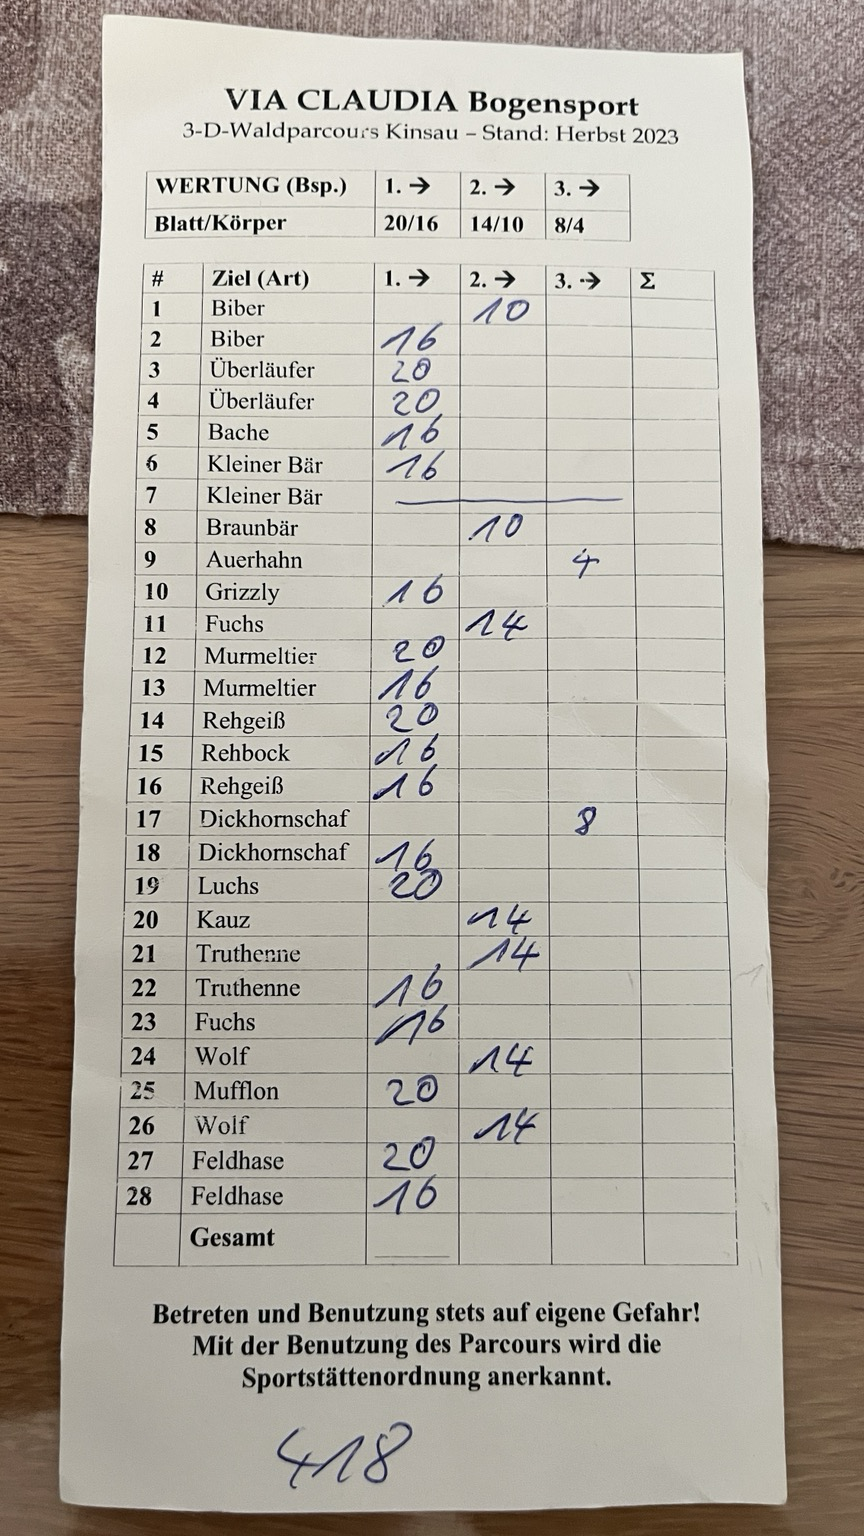 VIA CLAUDIA Bogensport
3-D-Waldparcours Kinsau – Stand: Herbst 2023
WERTUNG (Bsp.) 1. → 2. → 3. →
Blatt/Körper 20/16 14/10 8/4
# Ziel (Art) 1. → 2. → 3. → Σ
1 Biber 10
2 Biber 16
3 Überläufer 20
4 Überläufer 20
5 Bache 16
6 Kleiner Bär 16
7 Kleiner Bär —
8 Braunbär 10
9 Auerhahn 4
10 Grizzly 16
11 Fuchs 14
12 Murmeltier 20
13 Murmeltier 16
14 Rehgeiß 20
15 Rehbock 16
16 Rehgeiß 16
17 Dickhornschaf 8
18 Dickhornschaf 16
19 Luchs 20
20 Kauz 14
21 Truthenne 14
22 Truthenne 16
23 Fuchs 16
24 Wolf 14
25 Mufflon 20
26 Wolf 14
27 Feldhase 20
28 Feldhase 16
Gesamt
Betreten und Benutzung stets auf eigene Gefahr!
Mit der Benutzung des Parcours wird die
Sportstättenordnung anerkannt.
418